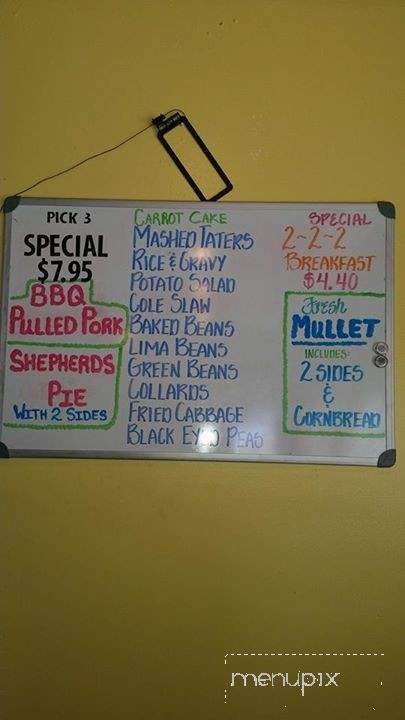 PICK 3
SPECIAL
$7.95
BBQ
PULLED PORK
SHEPHERDS
PIE
WITH 2 SIDES
CARROT CAKE
MASHED TATERS
RICE & GRAVY
POTATO SALAD
COLE SLAW
BAKED BEANS
LIMA BEANS
GREEN BEANS
COLLARDS
FRIED CABBAGE
BLACK EYED PEAS
SPECIAL
2-2-2
BREAKFAST
$4.40
Fresh
MULLET
INCLUDES:
2 SIDES
&
CORNBREAD
menupix